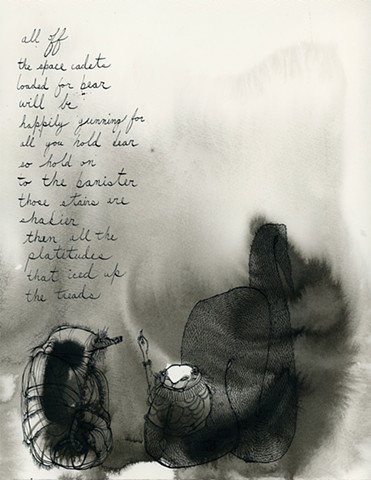 all off
the space cadets
loaded for bear
will be
happily gunning for
all you hold dear
so hold on
to the banister
those stairs are
shakier
then all the
platitudes
that iced up
the treads